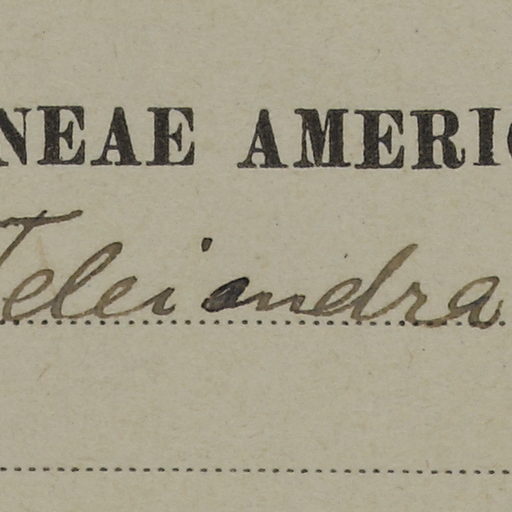 NEAE AMERI
Teleiandra